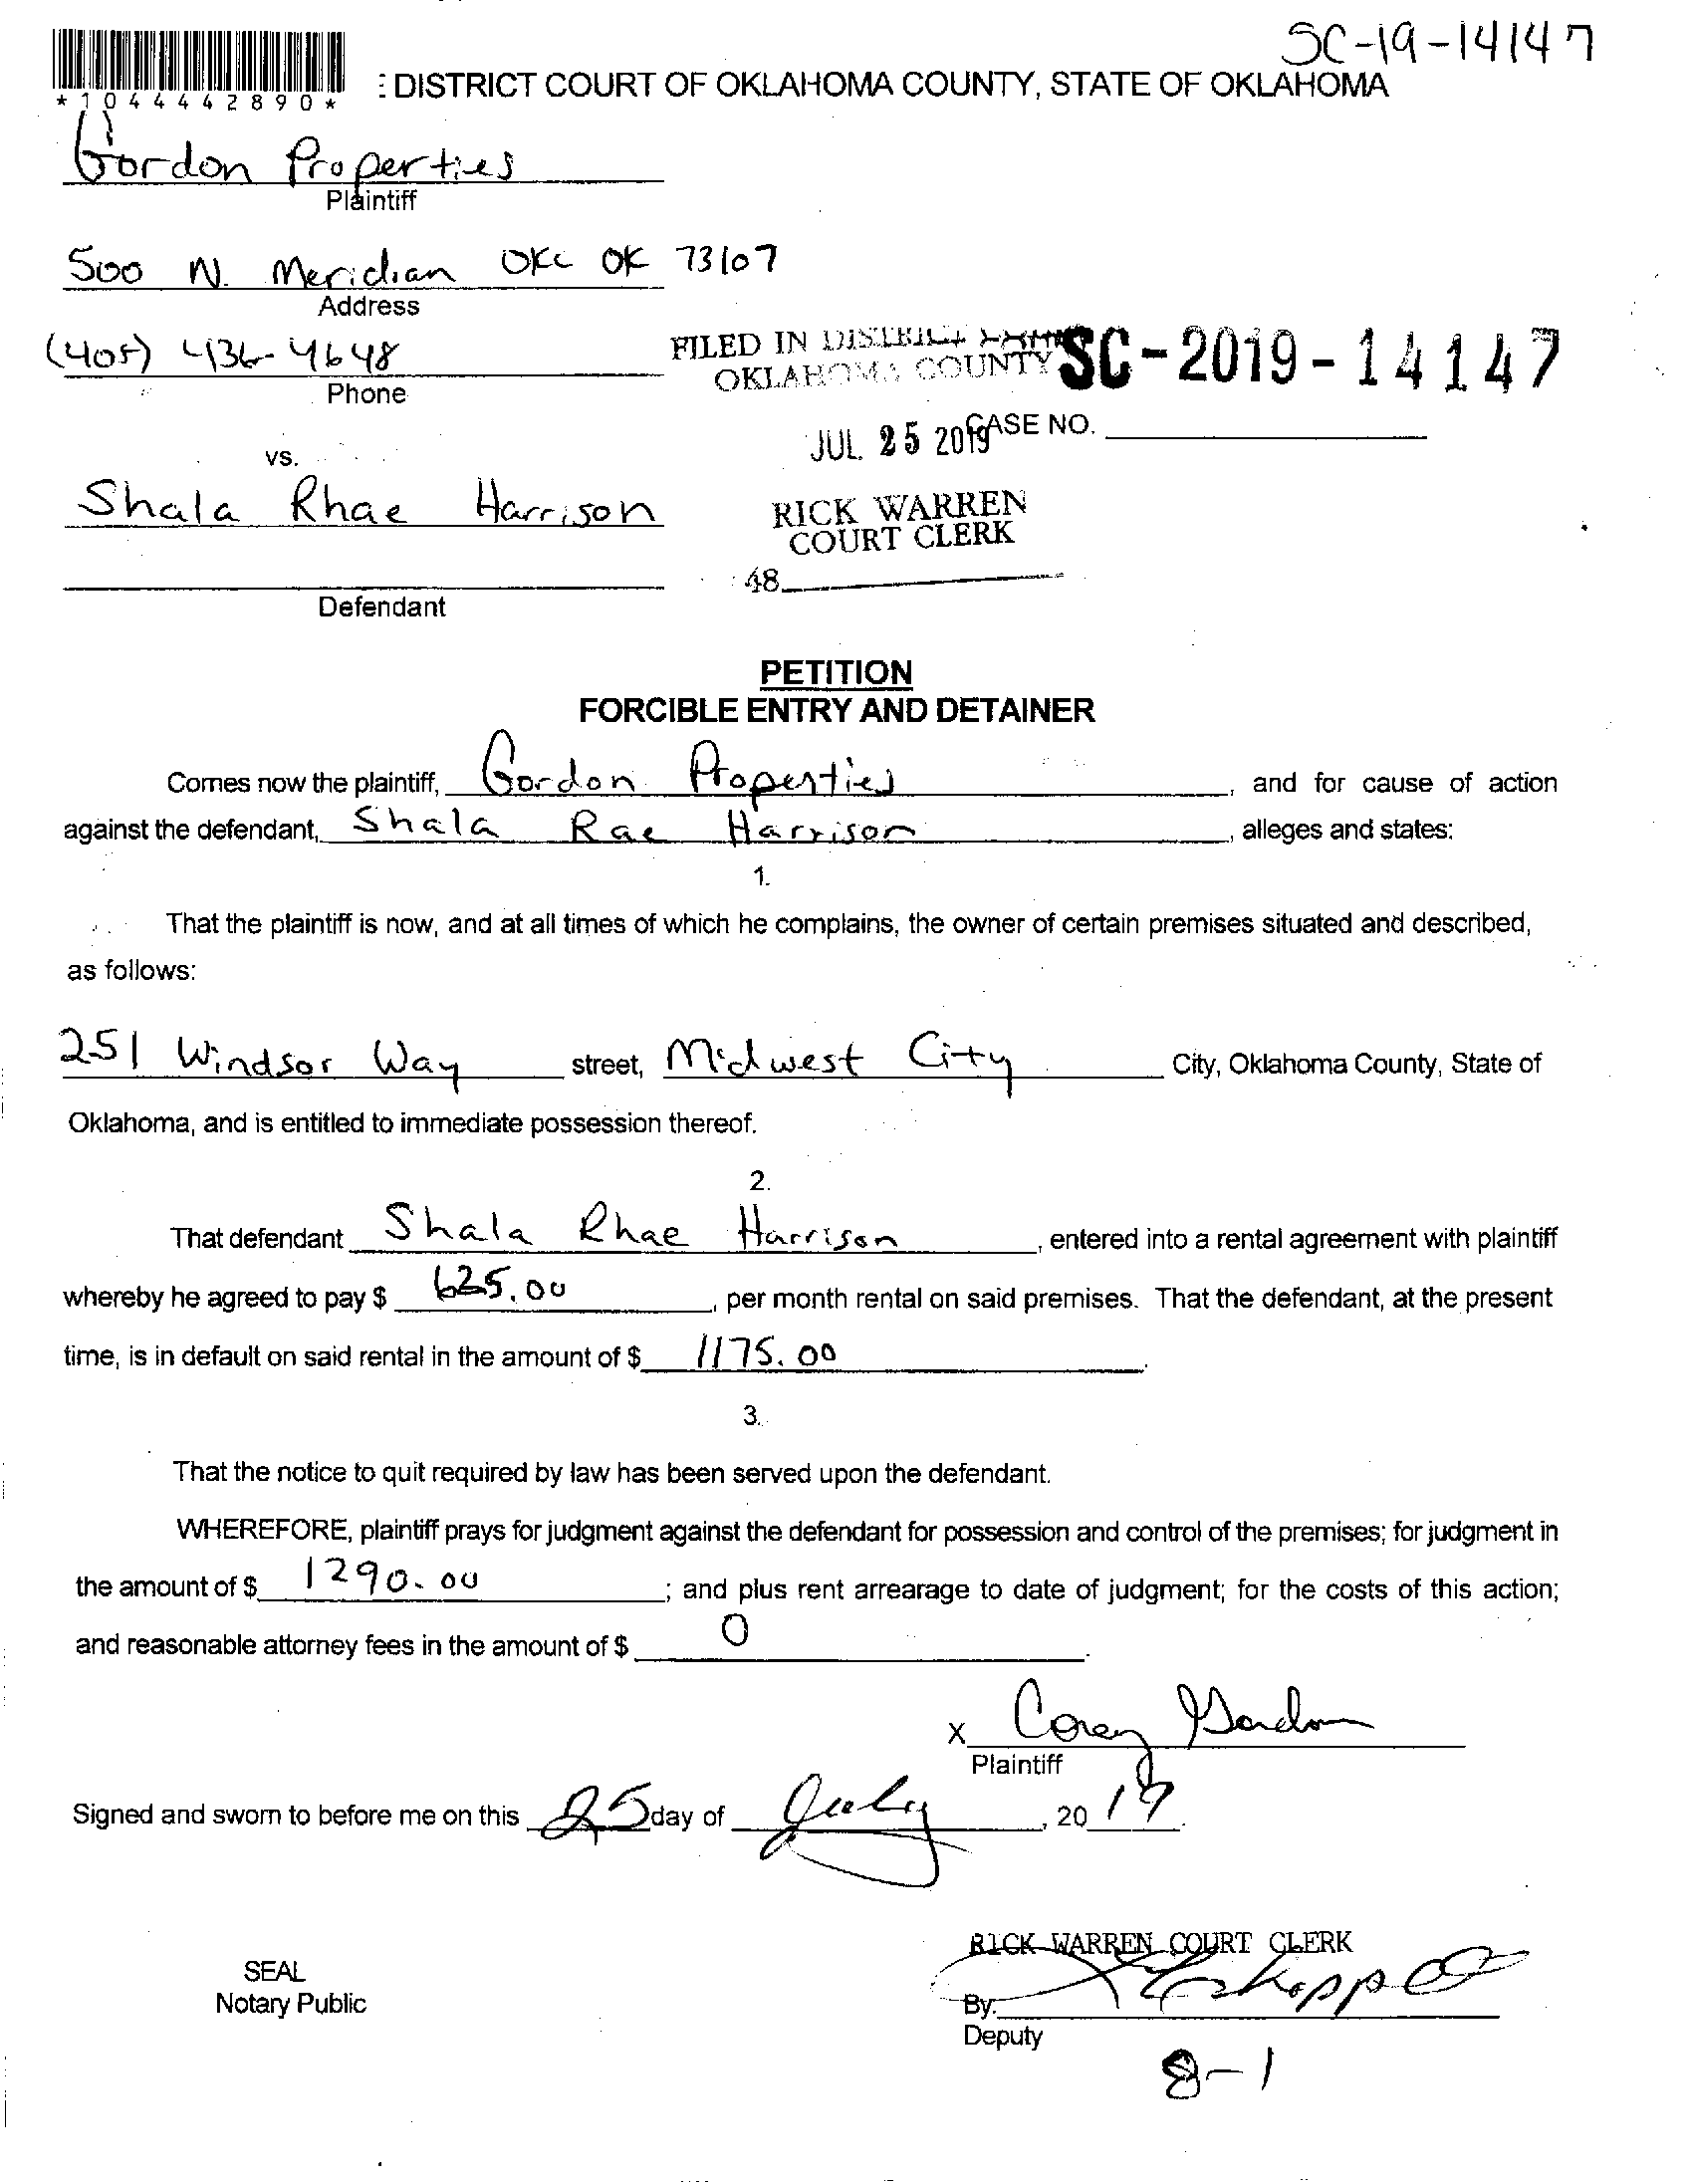 SC-19-14147
*1044442890*
: DISTRICT COURT OF OKLAHOMA COUNTY, STATE OF OKLAHOMA
Gordon Properties
Plaintiff
500 N. Meridian OKC OK 73107
Address
(405) 436-4648
Phone
FILED IN DISTRICT
OKLAHOMA COUNTY
SC-2019-14147
JUL 25 2019
CASE NO.
vs.
Shala Rhae Harrison
RICK WARREN
COURT CLERK
48
Defendant
PETITION
FORCIBLE ENTRY AND DETAINER
Comes now the plaintiff, Gordon Properties, and for cause of action
against the defendant, Shala Rae Harrison, alleges and states:
1.
That the plaintiff is now, and at all times of which he complains, the owner of certain premises situated and described,
as follows:
251 Windsor Way street, Midwest City City, Oklahoma County, State of
Oklahoma, and is entitled to immediate possession thereof.
2.
That defendant Shala Rhae Harrison, entered into a rental agreement with plaintiff
whereby he agreed to pay $ 625.00, per month rental on said premises. That the defendant, at the present
time, is in default on said rental in the amount of $ 1175.00.
3.
That the notice to quit required by law has been served upon the defendant.
WHEREFORE, plaintiff prays for judgment against the defendant for possession and control of the premises; for judgment in
the amount of $ 1290.00; and plus rent arrearage to date of judgment; for the costs of this action;
and reasonable attorney fees in the amount of $ 0.
X Corey Gordon
Plaintiff
Signed and sworn to before me on this 25 day of July, 2019.
RICK WARREN COURT CLERK
SEAL
Notary Public
By:
Deputy
8-1